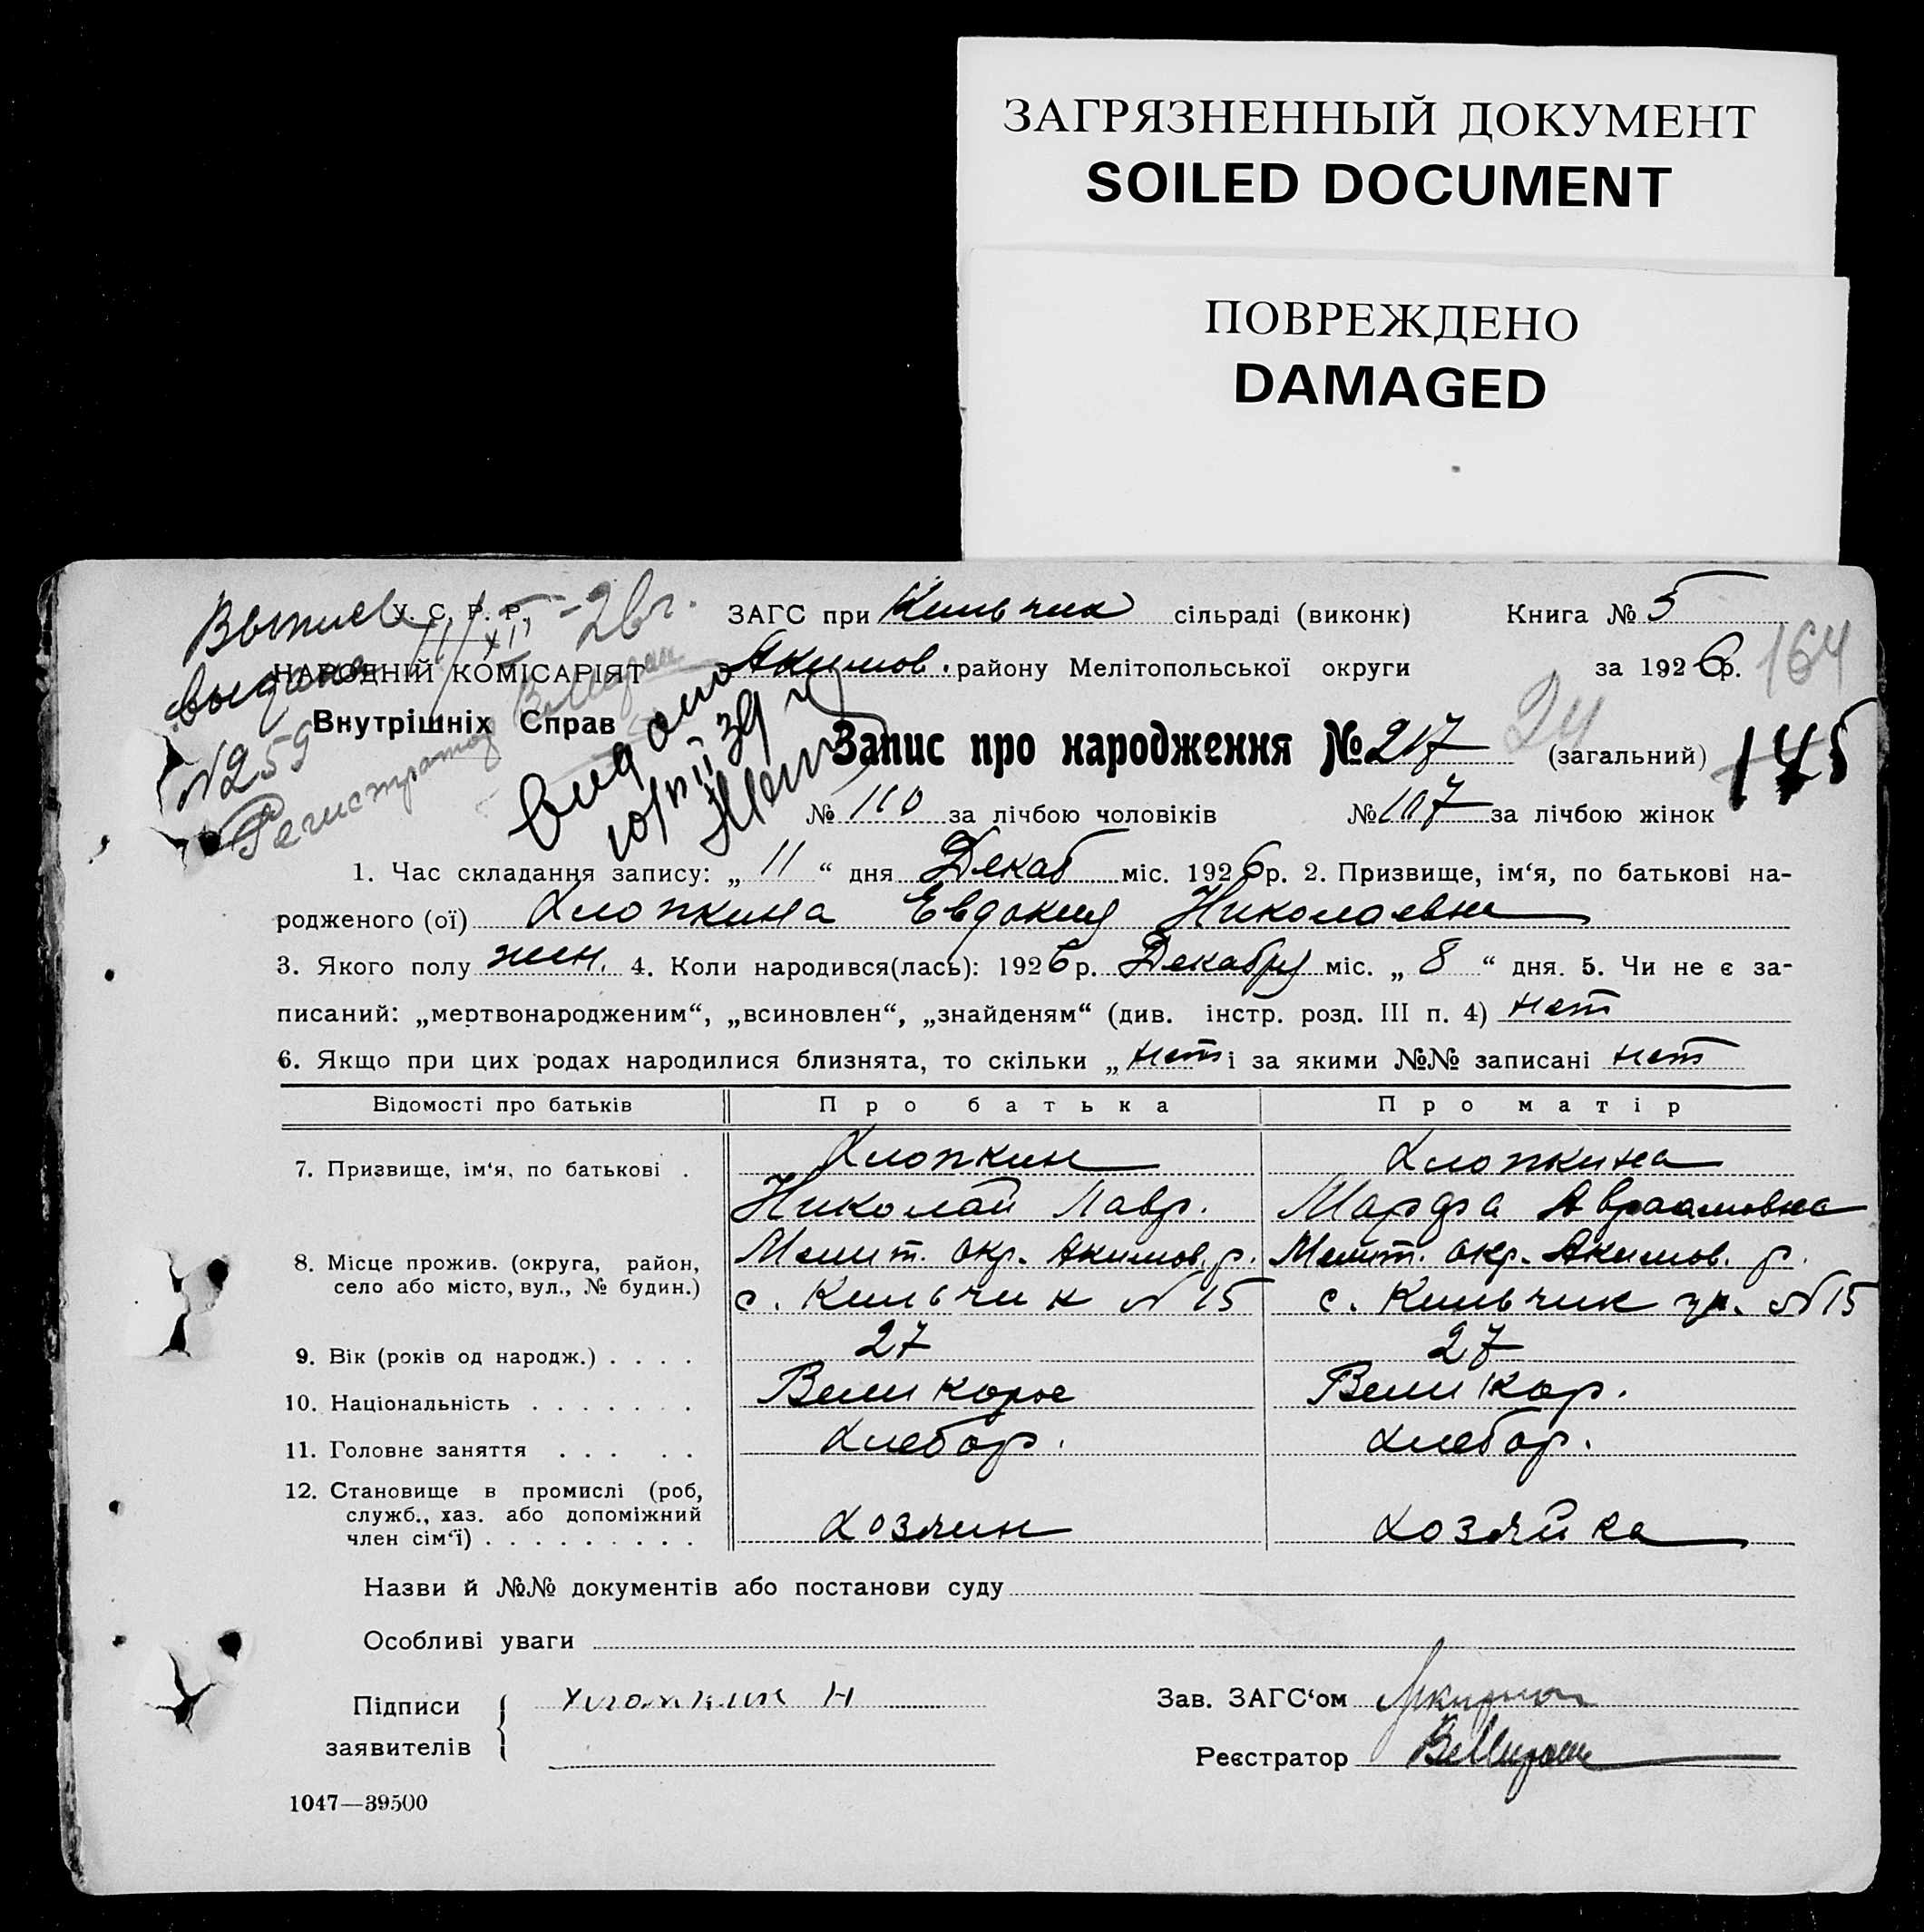 ЗАГРЯЗНЕННЫЙ ДОКУМЕНТ
SOILED DOCUMENT
ПОВРЕЖДЕНО
DAMAGED
У. С. Р. Р.
НАРОДНІЙ КОМІСАРІЯТ
Внутрішніх Справ
Выпись
выдана
11/XII-26 г.
№259
Регистратор
Видано
10/VII 39 г.
ЗАГС при Кильчик сільраді (виконк) Книга № 5
Акимов. району Мелітопольської округи за 1926 р.
164
Запис про народження № 217 24 (загальний) 145
№ 110 за лічбою чоловіків № 107 за лічбою жінок
1. Час складання запису: „ 11 “ дня Декаб міс. 1926 р. 2. Призвище, ім‘я, по батькові на-
родженого (ої) Хлопкина Евдокия Николаевна
3. Якого полу жен. 4. Коли народився(лась): 1926 р. Декабря міс. „ 8 “ дня. 5. Чи не є за-
писаний: „мертвонародженим“, „всиновлен“, „знайденям“ (див. інстр. розд. III п. 4) нет
6. Якщо при цих родах народилися близнята, то скільки „ нет і за якими №№ записані нет
Відомості про батьків Про батька Про матір
7. Призвище, ім‘я, по батькові . Хлопкин Хлопкина
Николай Лавр. Марфа Авраамовна
8. Місце прожив. (округа, район, село або місто, вул., № будин.) Мелит. окр. Акимов. р. Мелит. окр. Акимов. р.
с. Кильчик №15 с. Кильчик ул. №15
9. Вік (років од народж.) . . . . 27 27
10. Національність . . . . . . . Великорос Великор.
11. Головне заняття . . . . . Хлебор. Хлебор.
12. Становище в промислі (роб, служб., хаз. або допоміжний член сім‘ї) . . . . . . . . . Хозяин Хозяйка
Назви й №№ документів або постанови суду
Особливі уваги
Підписи заявителів Хлопкин Н Зав. ЗАГС‘ом
Реєстратор
1047—39500